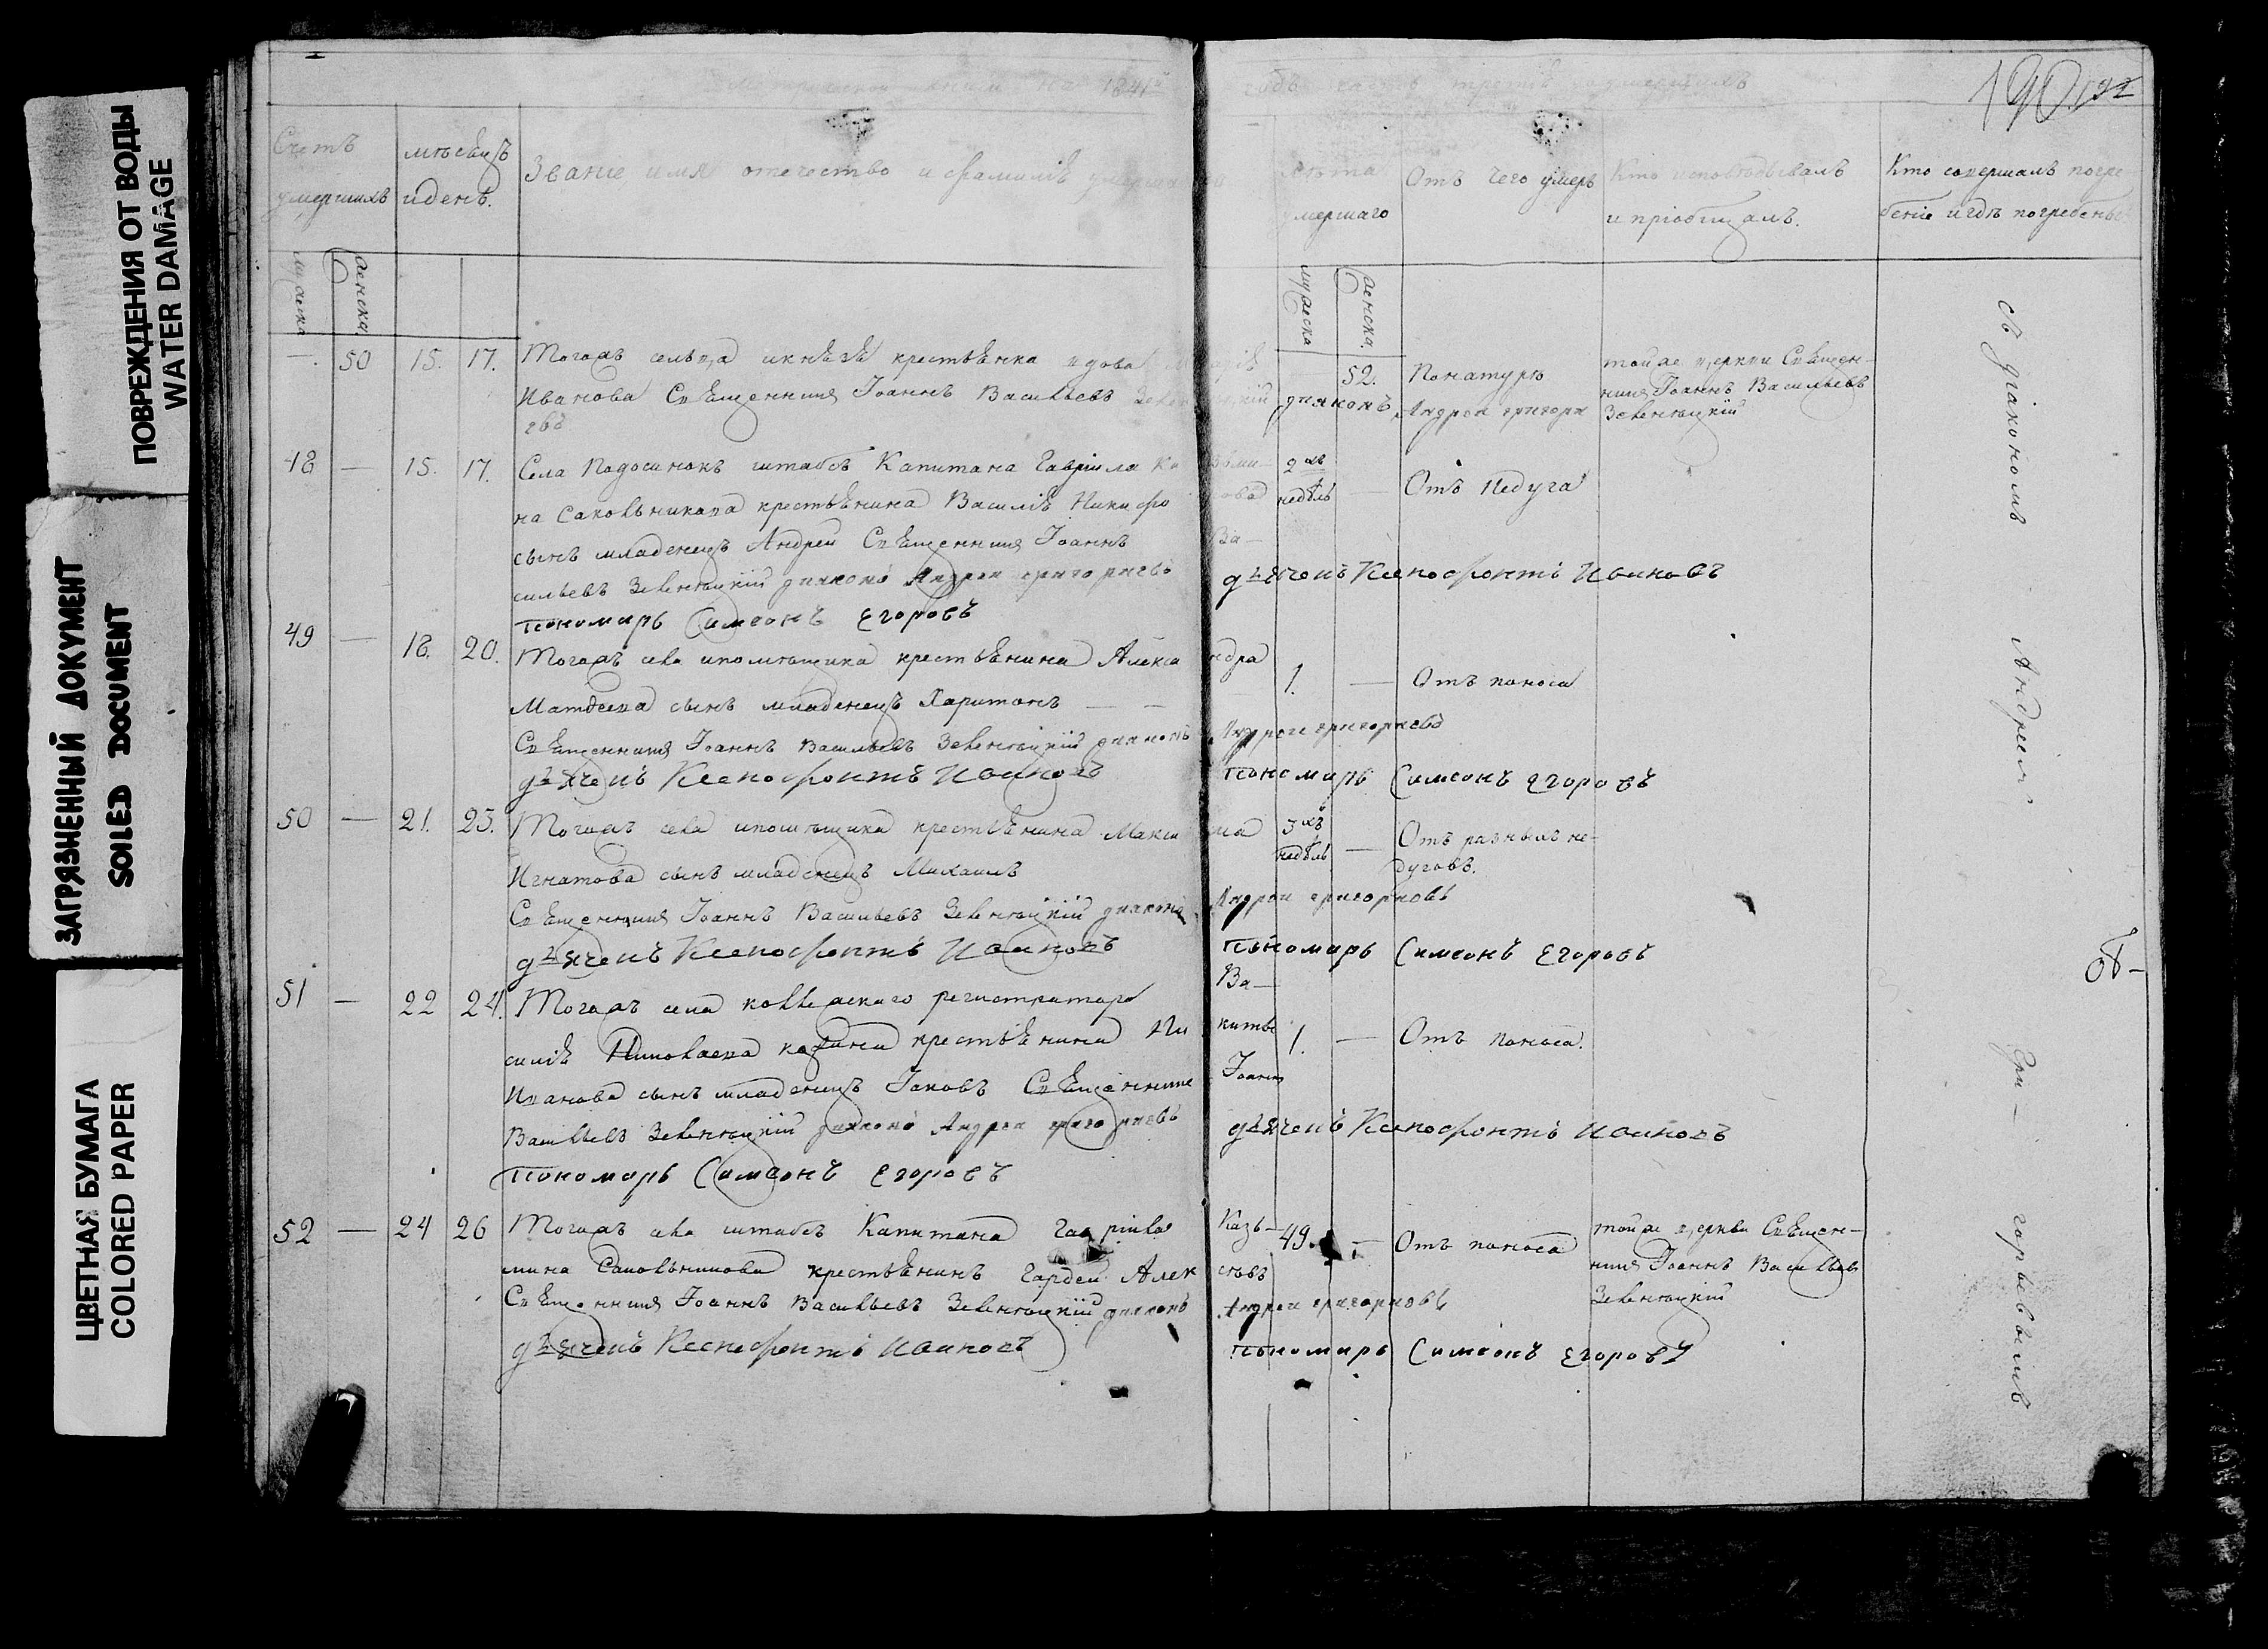 ПОВРЕЖДЕНИЯ ОТ ВОДЫ
WATER DAMAGE
ЗАГРЯЗНЕННЫЙ ДОКУМЕНТ
SOILED DOCUMENT
ЦВЕТНАЯ БУМАГА
COLORED PAPER
на 1841й годъ третія умершихъ
190
Счетъ умершихъ
мѣсяцъ и день.
Званіе имя отечество и фамилія
Лѣта умершаго
Отъ чего умеръ
Кто исповѣдывалъ и пріобщалъ.
Кто совершалъ погребеніе и гдѣ погребены
мужска женска
мужска женска.
— 50 15. 17. Тогожъ сельца крестьянка вдова
Иванова Священникъ Іоаннъ Васильевъ
52. По натурѣ
дияконъ Андреи григори
евъ
тойже церкви Священ-
никъ Іоаннъ Васильевъ
Зевенецкій
48 — 15. 17. Села Подосинокъ штабсъ Капитана Гавріила Козьми-
на Сакольникова крестьянина Василія Никифорова
сынъ младенецъ Андрей Священникъ Іоаннъ Ва—
сильевъ Зевенецкій дияконъ Андреи григориевъ
дьячекъ Ксенофонтъ Ивановъ
пономарь Симеонъ Егоровъ
2хъ недѣль — Отъ Недуга
49 — 18. 20. Тогожъ села и помѣщика крестьянина Александра
Матвеева сынъ младенецъ Харитонъ — —
Священникъ Іоаннъ Васильевъ Зевенецкій дияконъ Андреи григориевъ
дьячекъ Ксенофонтъ Ивановъ пономарь Симеонъ Егоровъ
1. — Отъ поноса
50 — 21. 23. Тогожъ села и помѣщика крестьянина Максима
Игнатова сынъ младенецъ Михаилъ
Священникъ Іоаннъ Васильевъ Зевенецкій дияконъ Андреи григориевъ
дьячекъ Ксенофонтъ Ивановъ пономарь Симеонъ Егоровъ
3хъ недѣль — Отъ разныхъ не-
дуговъ.
51 — 22 24. Тогожъ села коллежскаго регистратора Ва—
силія Николаева крестьянина Никиты
Иванова сынъ младенецъ Іаковъ Священникъ Іоаннъ
Васильевъ Зевенецкій дияконъ Андреи григориевъ
дьячекъ Ксенофонтъ Ивановъ
пономарь Симеонъ Егоровъ
1. — Отъ поноса.
52 — 24 26 Тогожъ села штабсъ Капитана Гавріила Козь—
мина Сакольникова крестьянинъ Гордей Алексѣевъ
Священникъ Іоаннъ Васильевъ Зевенецкій дияконъ Андреи григориевъ
дьячекъ Ксенофонтъ Ивановъ пономарь Симеонъ Егоровъ
49. — Отъ поноса
тойже церкви Священ—
никъ Іоаннъ Васильевъ
Зевенецкій
съ діакономъ Андреемъ Гри—горьевымъ